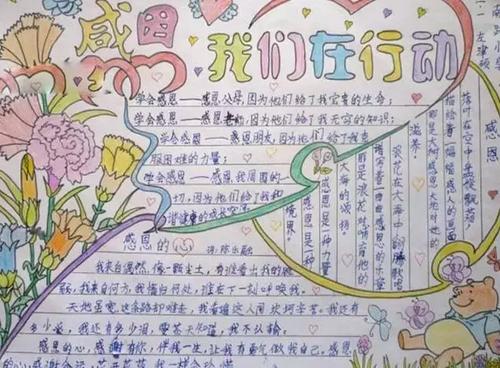 感恩
我们在行动
学会感恩——感恩父母,因为他们给了我宝贵的生命;
学会感恩——感恩老师,因为他们给了我无穷的知识;
学会感恩——感恩朋友,因为他们给了我克
服困难的力量;
学会感恩——感恩我周围的一
切,因为他们给了我和
谐健康的成长空间。
感恩
落叶在空中盘旋飘落,
描绘着一幅幅感人的画面
那是大树感恩大地对她的
滋养。
浪花在大海中翻腾歌唱
谱写着一曲曲感恩的乐章
那是浪花对哺育他的
大海的诚挚。
感恩是一种力量
感恩是一种
境界!
感恩的心
我来自偶然,像一颗尘土,有谁看出我的脆
弱,我来自何方,我情归何处,谁在下一刻呼唤我。
天地虽宽,这条路却难走,我看遍这人间坎坷辛苦。我还有
多少爱,我还有多少泪,要苍天知道,我不认输。
感恩的心,感谢有你,伴我一生,让我有勇气做我自己,感恩
的心,感谢命运,花开花落,我一样会珍惜